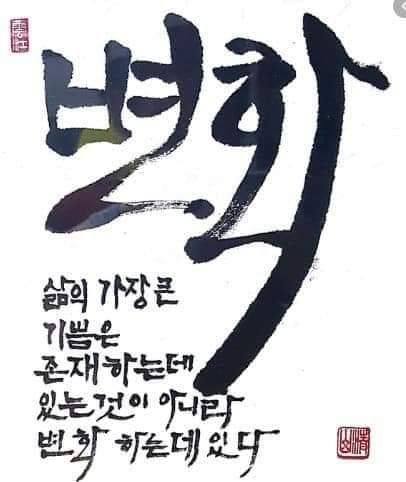 변화
삶의 가장 큰
기쁨은
존재하는데
있는것이 아니라
변화 하는데 있다